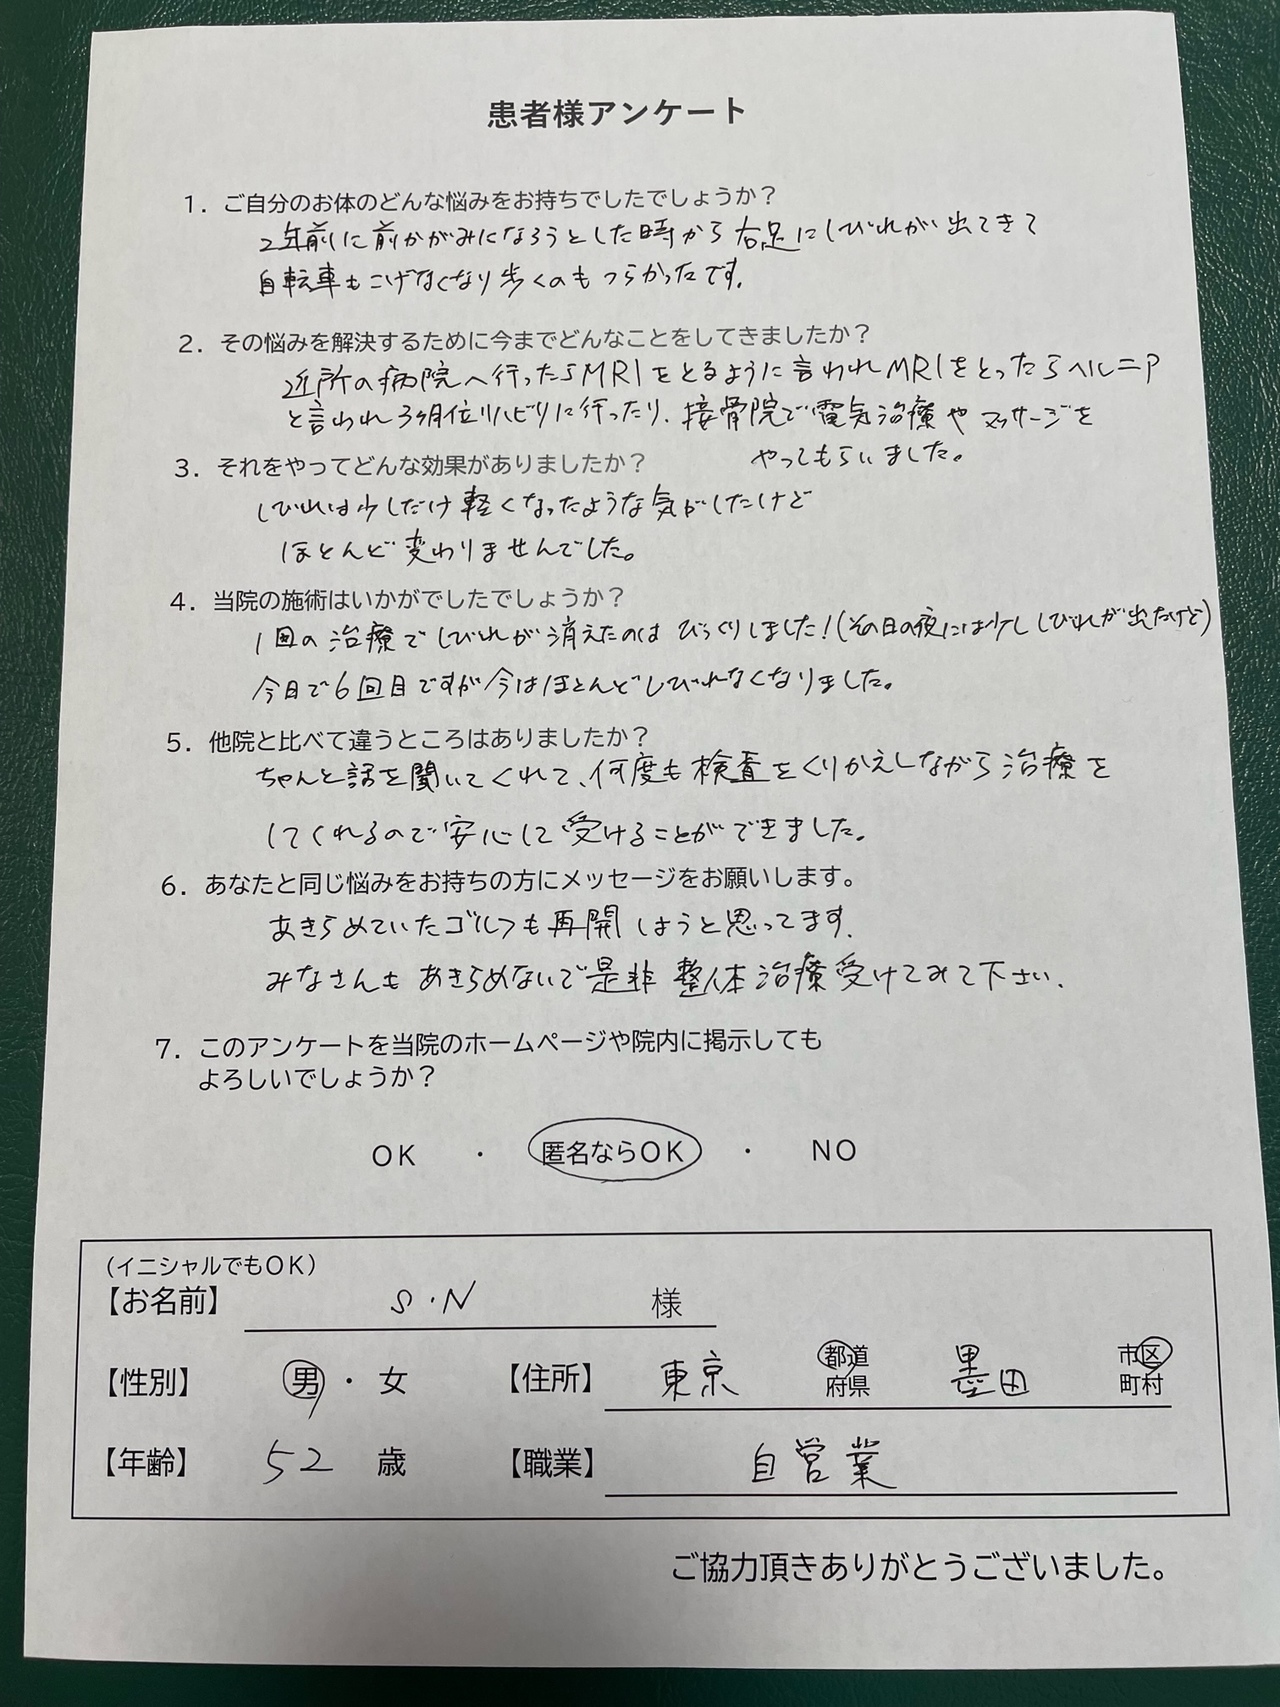 患者様アンケート
1．ご自分のお体のどんな悩みをお持ちでしたでしょうか？
2年前に前かがみになろうとした時から右足にしびれが出てきて
自転車もこげなくなり歩くのもつらかったです。
2．その悩みを解決するために今までどんなことをしてきましたか？
近所の病院へ行ったらMRIをとるように言われMRIをとったらヘルニア
と言われ3ヶ月位リハビリに行ったり、接骨院で電気治療やマッサージを
やってもらいました。
3．それをやってどんな効果がありましたか？
しびれは少しだけ軽くなったような気がしたけど
ほとんど変わりませんでした。
4．当院の施術はいかがでしたでしょうか？
1回の治療でしびれが消えたのはびっくりしました！(その日の夜には少ししびれが出たけど)
今日で6回目ですが今はほとんどしびれなくなりました。
5．他院と比べて違うところはありましたか？
ちゃんと話を聞いてくれて、何度も検査をくりかえしながら治療を
してくれるので安心して受けることができました。
6．あなたと同じ悩みをお持ちの方にメッセージをお願いします。
あきらめていたゴルフも再開しようと思ってます、
みなさんもあきらめないで是非整体治療受けてみて下さい、
7．このアンケートを当院のホームページや院内に掲示しても
よろしいでしょうか？
OK ・ 匿名ならOK ・ NO
（イニシャルでもOK）
【お名前】 S・N 様
【性別】 男・女 【住所】 東京 都道府県 墨田 市区町村
【年齢】 52 歳 【職業】 自営業
ご協力頂きありがとうございました。